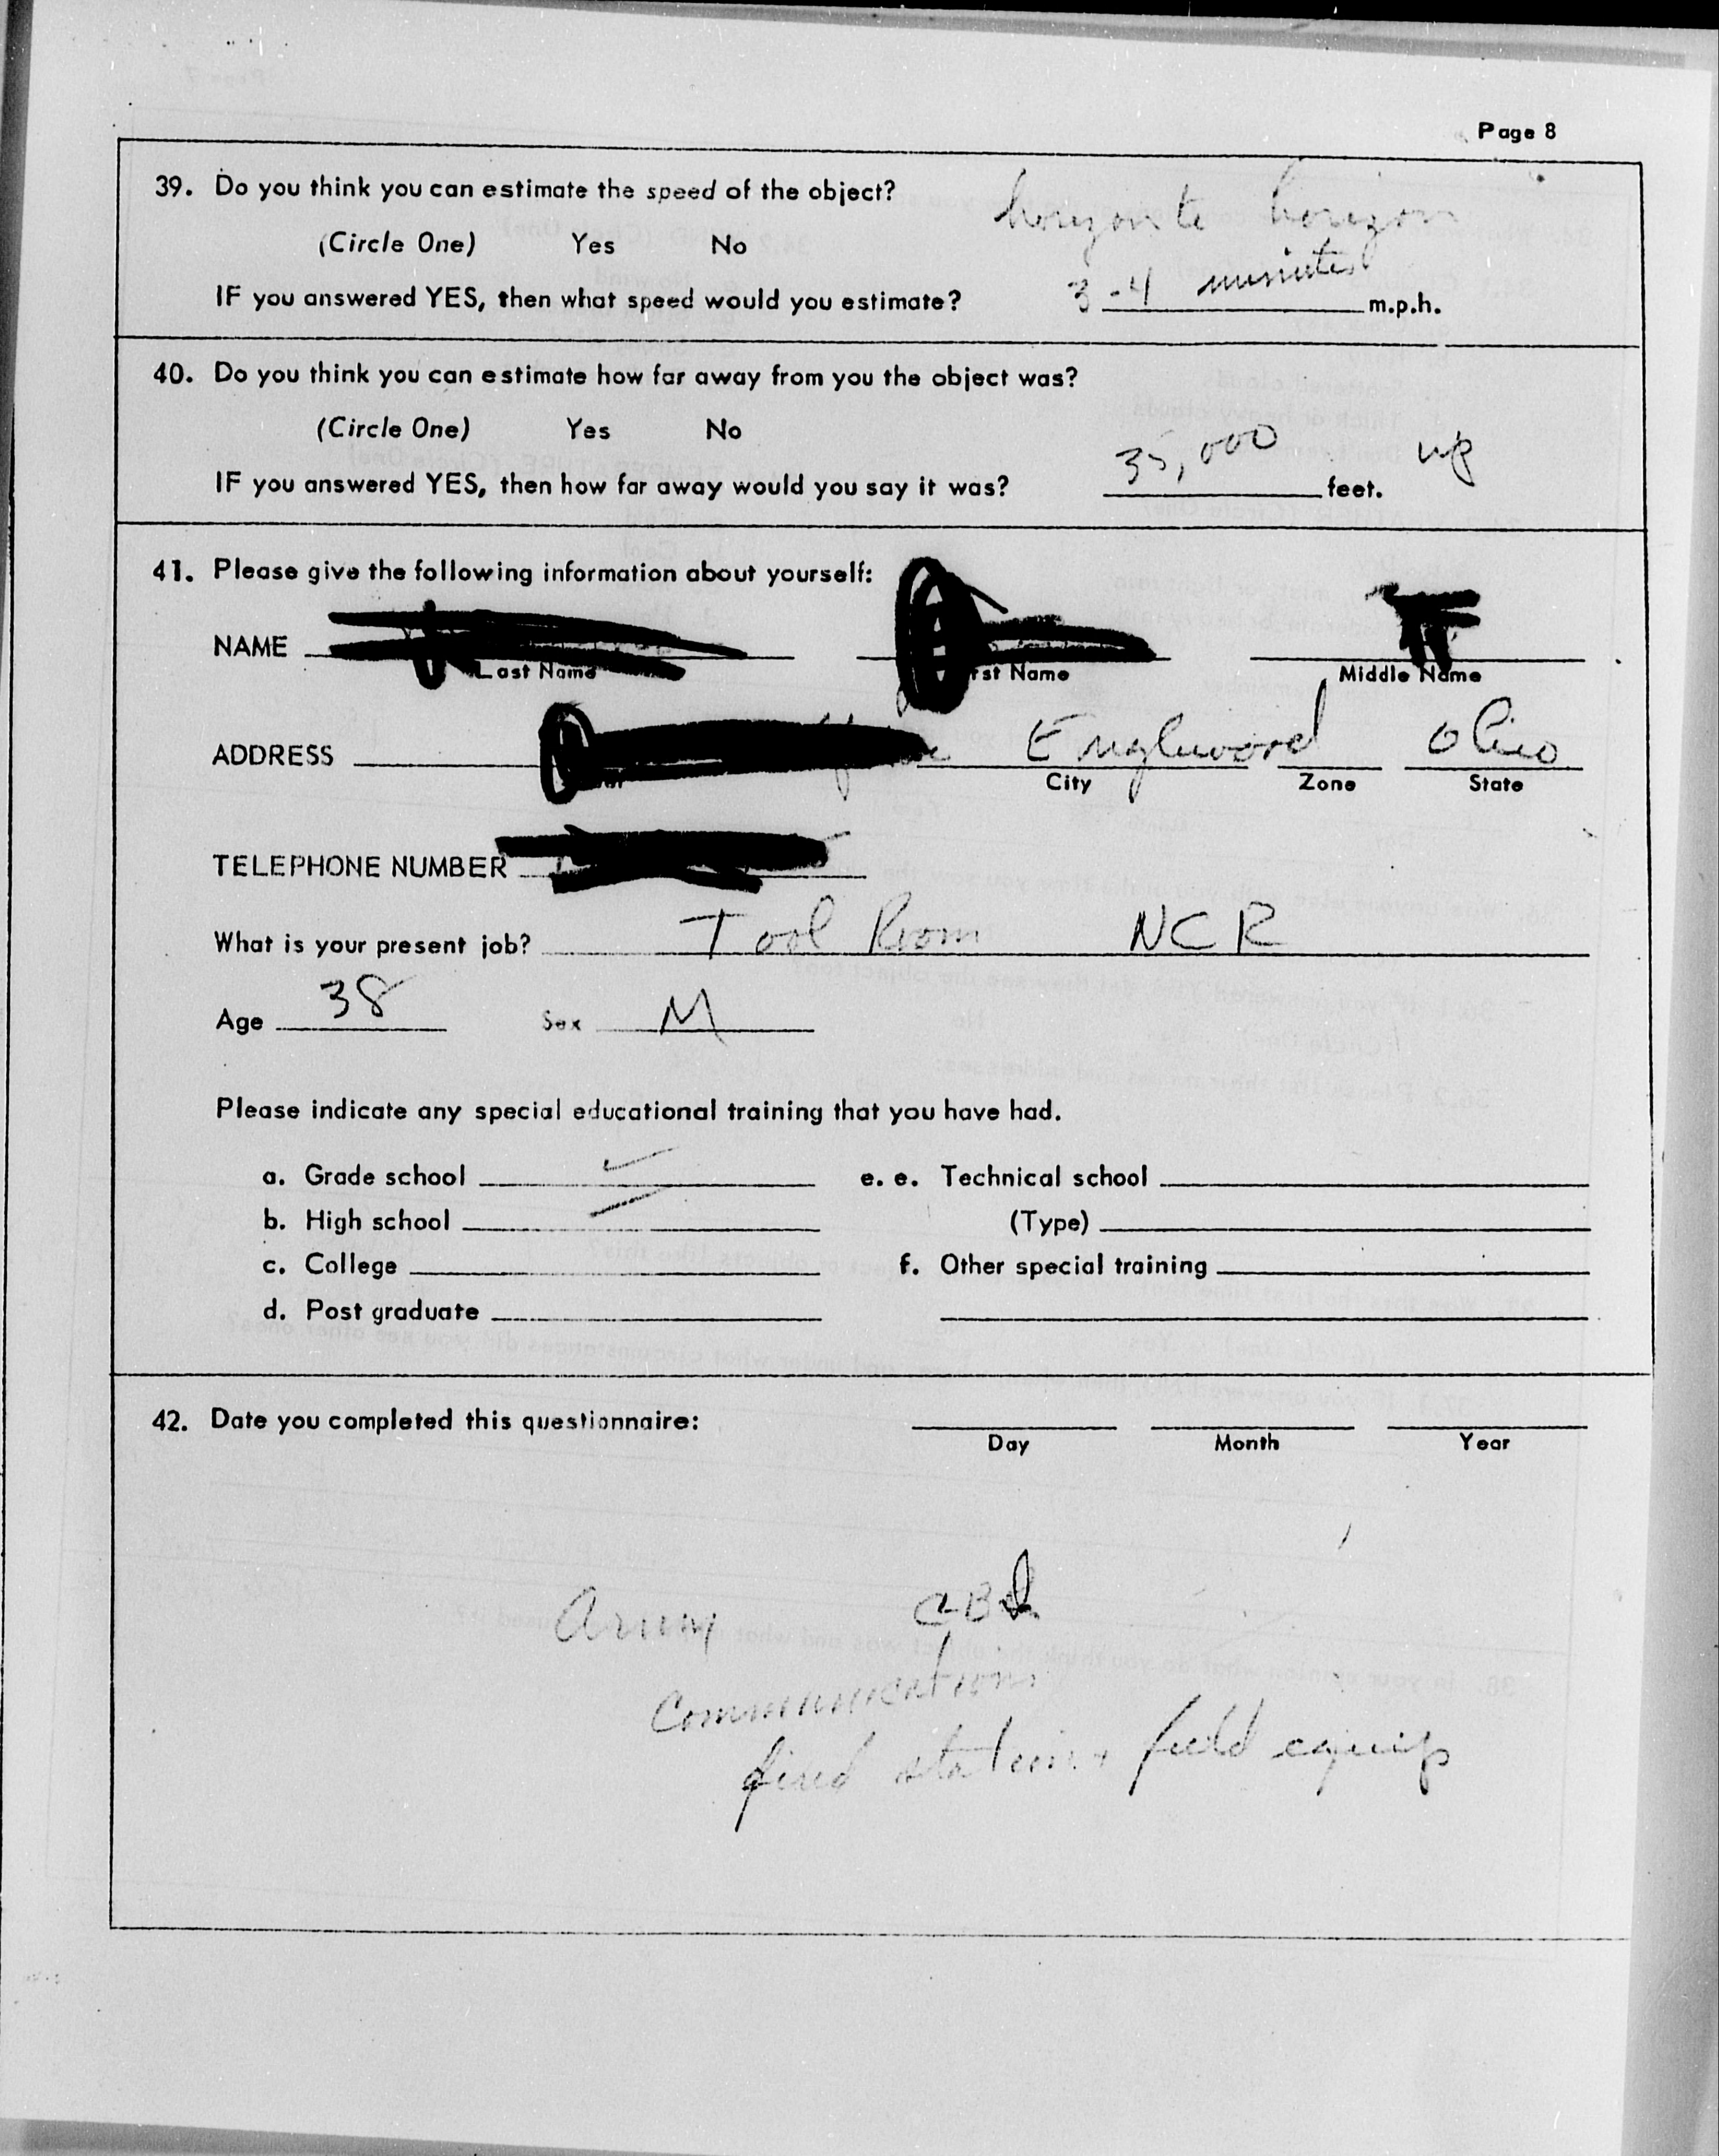 Page 8
39. Do you think you can estimate the speed of the object?
horizon to horizon
(Circle One) Yes No
3-4 minutes
IF you answered YES, then what speed would you estimate? m.p.h.
40. Do you think you can estimate how far away from you the object was?
(Circle One) Yes No
35,000 up
IF you answered YES, then how far away would you say it was? feet.
41. Please give the following information about yourself:
NAME
Last Name rst Name Middle Name
ADDRESS Englewood Ohio
City Zone State
TELEPHONE NUMBER
What is your present job? Tool Room NCR
Age 38 Sex M
Please indicate any special educational training that you have had.
a. Grade school ✓ e. e. Technical school
b. High school ✓ (Type)
c. College f. Other special training
d. Post graduate
42. Date you completed this questionnaire:
Day Month Year
Army CBI
Communications
fixed station + field equip